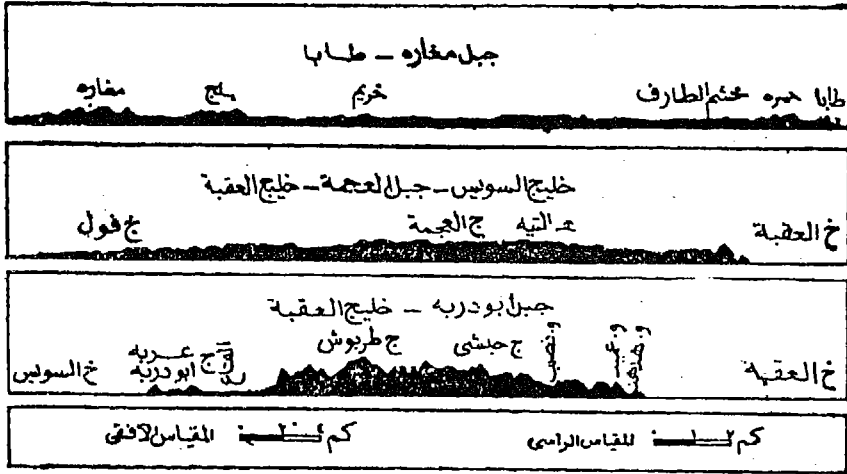 جبل مغاره – طابا
طابا حمره مخشم الطارف خريم يلج مغاره
خليج السويس – جبل العجمة – خليج العقبة
خ العقبة هـ التيه ج العجمة ج فول
جبل ابودربه – خليج العقبة
خ العقبة و نصب ج حبشى ج طربوش ج عربه ابودربه خ السويس
كم ٢ ١ المقياس الراسى كم ٤٠ ٢٠ المقياس الافقى